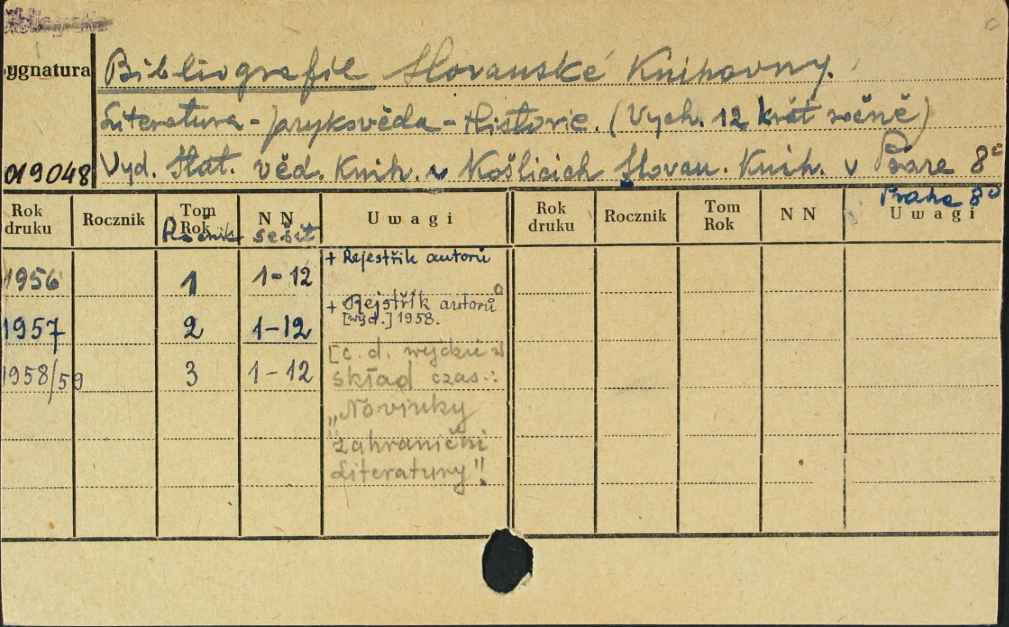 ygnatura
Bibliografie Slovanské Knihovny.
Literatura - Jazykověda - Historie. (Vych. 12 krát ročně)
019048
Vyd. Stat. věd. Knih. v Košicích Slovan. Knih. v 8°
Praha 8°
Rok druku Rocznik Tom Rok N N Uwagi Rok druku Rocznik Tom Rok N N Uwagi
Ročník sešit
1956 1 1-12 + Rejestřík autorů
1957 2 1-12 + Rejstřík autorů
[wyd.] 1958.
1958/59 3 1-12 [c. d. wejdzie w
skład czas.:
„Novinky
zahraniční
Literatury".